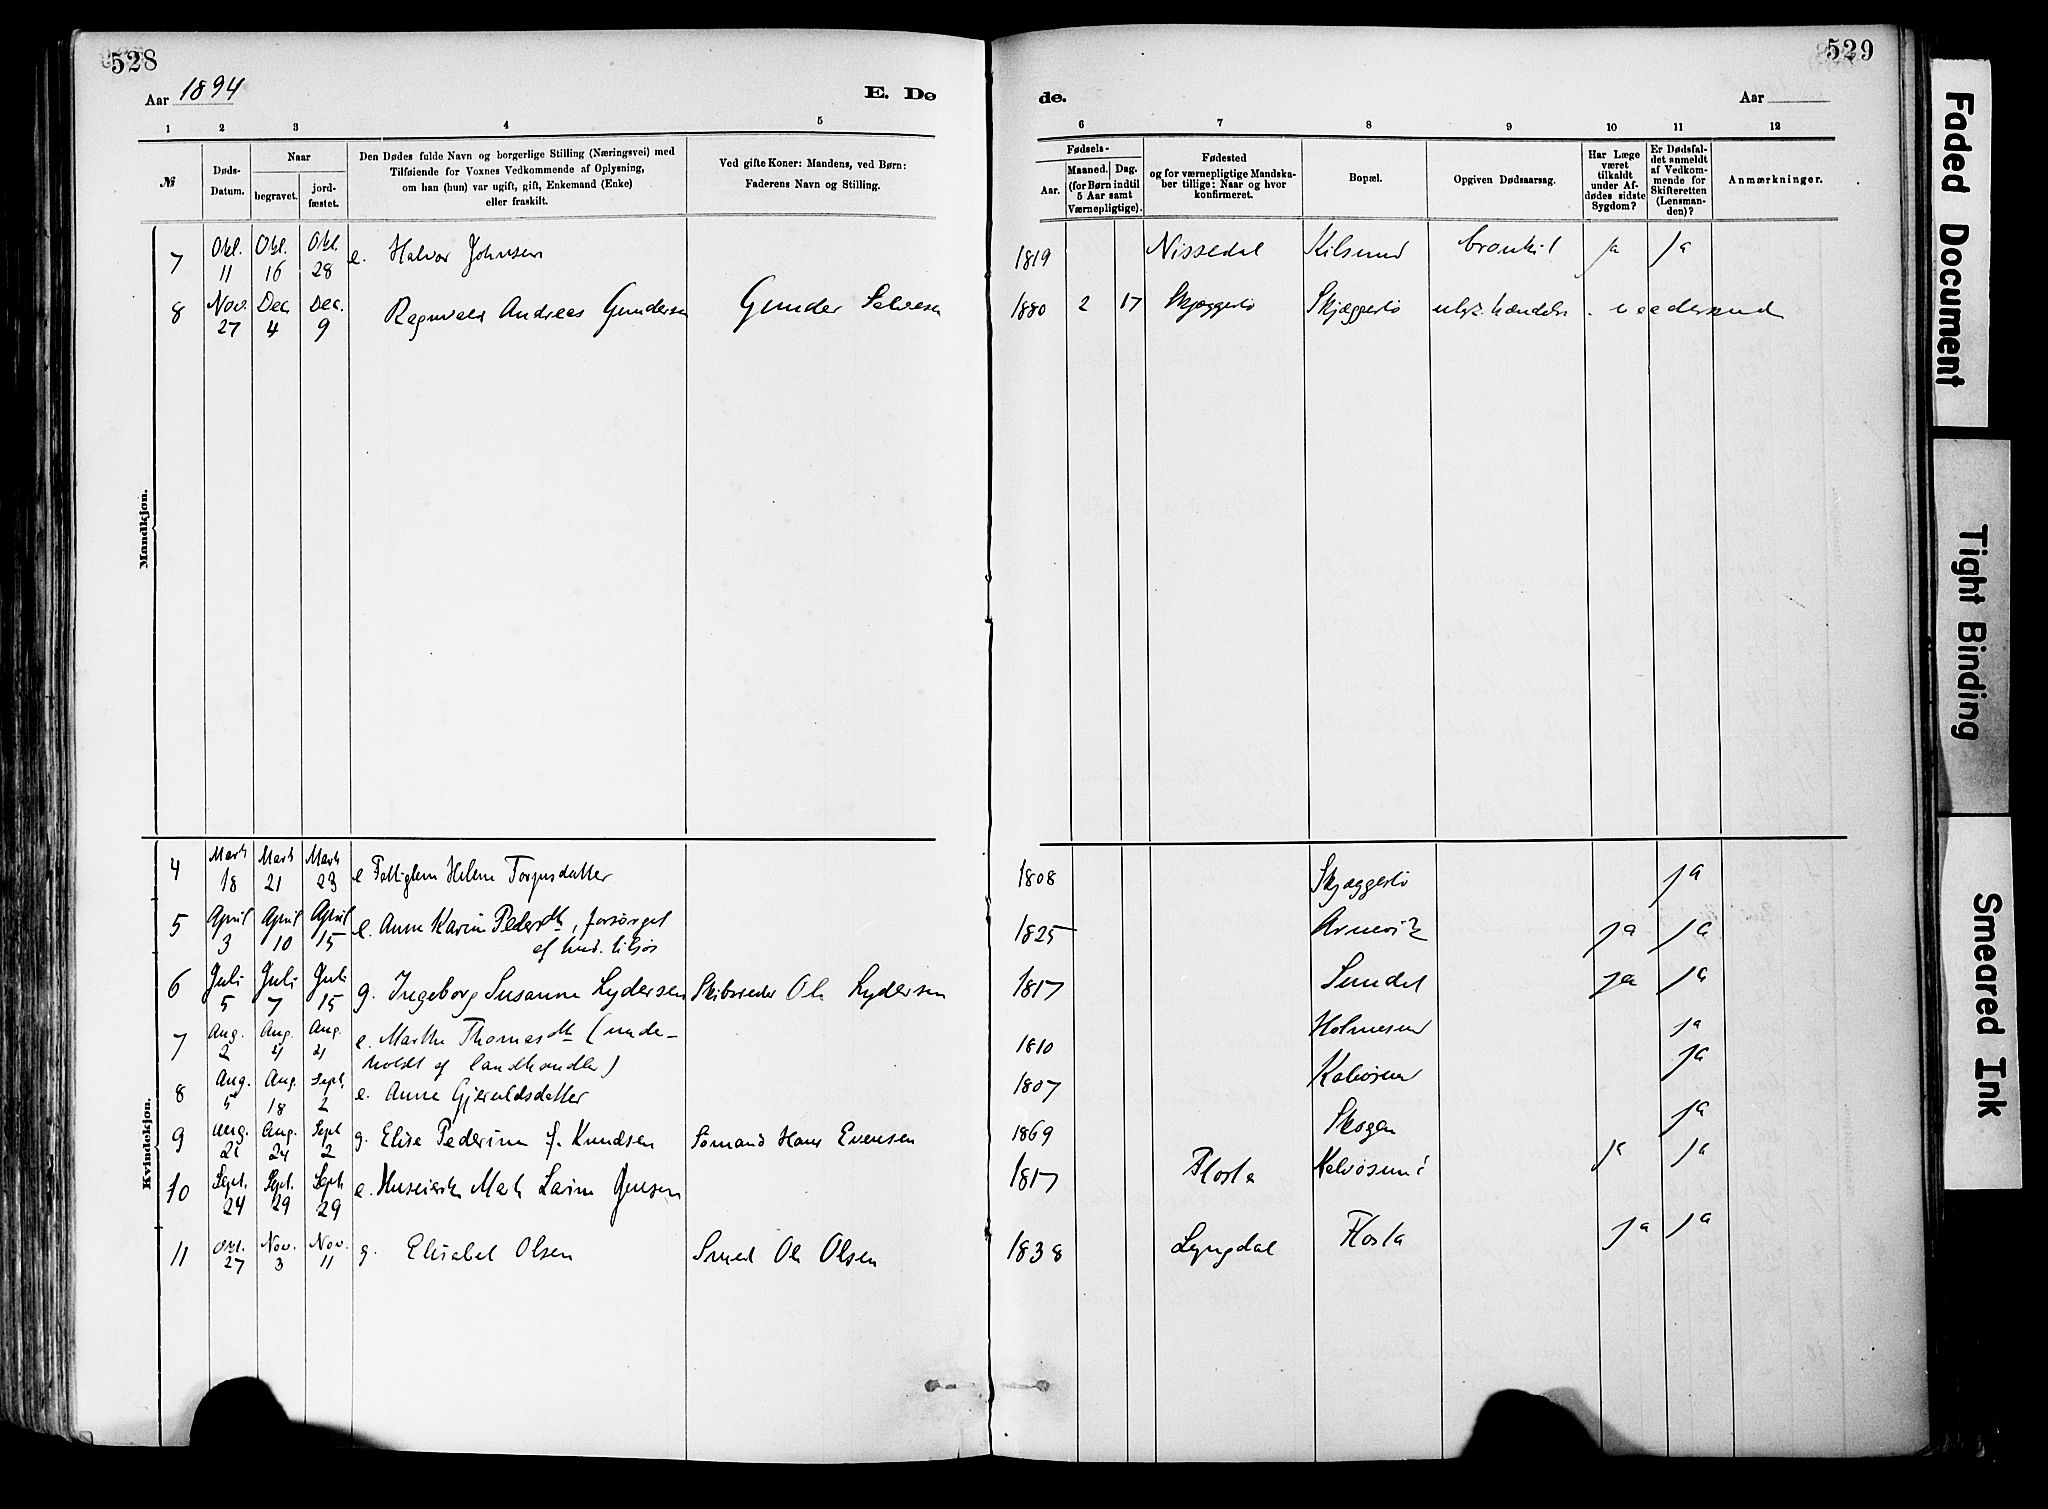 528
Aar 1894
E. Dø
1 2 3 4 5
№
Døds-
Datum.
Naar
begravet.
jord-
fæstet.
Den Dødes fulde Navn og borgerlige Stilling (Næringsvei) med
Tilføiende for Voxnes Vedkommende af Oplysning,
om han (hun) var ugift, gift, Enkemand (Enke)
eller fraskilt.
Ved gifte Koner: Mandens, ved Børn:
Faderens Navn og Stilling.
Mandkjøn.
7 Okt. 11 Okt. 16 Okt. 28 e. Halvor Johnsen
8 Nov. 27 Dec. 4 Dec. 9 Ragnvald Andreas Gundersen Gunder Salvesen
Kvindekjøn.
4 Marts 18 Marts 21 Marts 23 e Helene Torjusdatter
5 April 3 April 10 April 15 e. Anne Karin Pedersdtr, forsørget
af
6 Juli 5 Juli 7 Juli 15 g. Ingeborg Susanne Lydersen Ole Lydersen
7 Aug. 2 Aug. 4 Aug. e. Marthe Thomasdtr (unde-
holdt af landhandler)
8 Aug. 5 Aug. 18 Sept. 2 e. Anne Gjeruldsdatter
9 Aug. Aug. 24 Sept 2 g. Elise Pederine f. Knudsen Sømand Hans Evensen
10 Sept. 24 Sept. 29 Sept 29 e. Jensen
11 Okt. 27 Nov. 3 Nov. 11 g. Elisabet Olsen Smed Ole Olsen
529
de.
Aar
6 7 8 9 10 11 12
Fødsels-
Aar.
Maaned. Dag.
(for Børn indtil
5 Aar samt
Værnepligtige).
Fødested
og for værnepligtige Mandska-
ber tillige: Naar og hvor
konfirmeret.
Bopæl.
Opgiven Dødsaarsag.
Har Læge
været
tilkaldt
under Af-
dødes sidste
Sygdom?
Er Dødsfal-
det anmeldt
af Vedkom-
mende for
Skifteretten
(Lensman-
den)?
Anmærkninger.
1819 Nissedal Kilsund bronkit ja ja
1880 2 17 Skjæggestø Skjæggestø
1808 Skjæggestø ja
1825 Arnevik ja ja
1817 Sundet ja ja
1810 Holmesund ja
1807 Kalvøsund ja
1869 Skogen ja
1817 Flosta Kalvøsund ja ja
1838 Lyngdal Flosta ja ja
Faded Document
Tight Binding
Smeared Ink